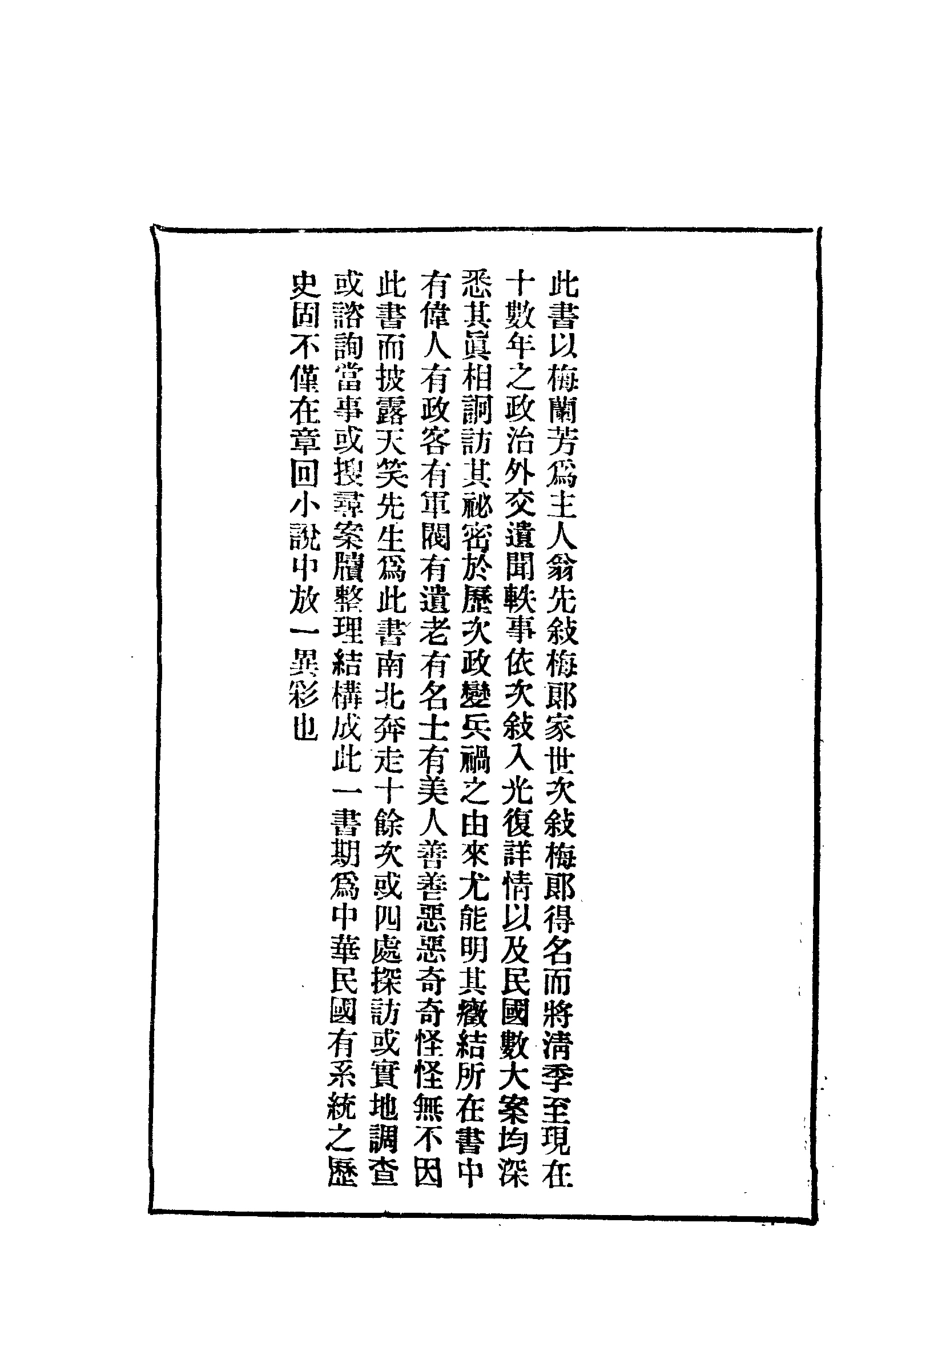 此書以梅蘭芳爲主人翁先敍梅郞家世次敍梅郞得名而將淸季至現在
十數年之政治外交遺聞軼事依次敍入光復詳情以及民國數大案均深
悉其眞相詗訪其祕密於歷次政變兵禍之由來尤能明其癥結所在書中
有偉人有政客有軍閥有遺老有名士有美人善善惡惡奇奇怪怪無不因
此書而披露天笑先生爲此書南北奔走十餘次或四處探訪或實地調查
或諮詢當事或搜尋案牘整理結構成此一書期爲中華民國有系統之歷
史固不僅在章回小說中放一異彩也